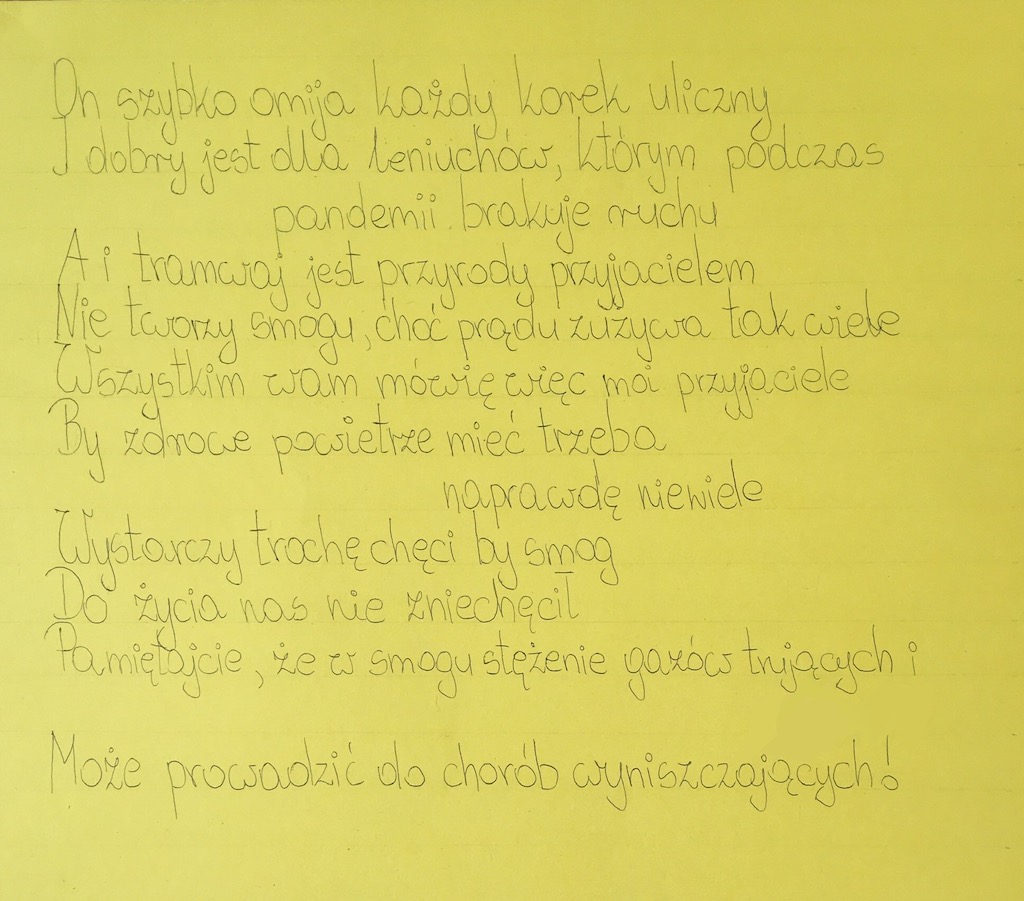 On szybko omija każdy korek uliczny
I dobry jest dla leniuchów, którym podczas
pandemii brakuje ruchu
A i tramwaj jest przyrody przyjacielem
Nie tworzy smogu, choć prądu zużywa tak wiele
Wszystkim wam mówię więc moi przyjaciele
By zdrowe powietrze mieć trzeba
naprawdę niewiele
Wystarczy trochę chęci by smog
Do życia nas nie zniechęcił
Pamiętajcie, że w smogu stężenie gazów trujących i
Może prowadzić do chorób wyniszczających!